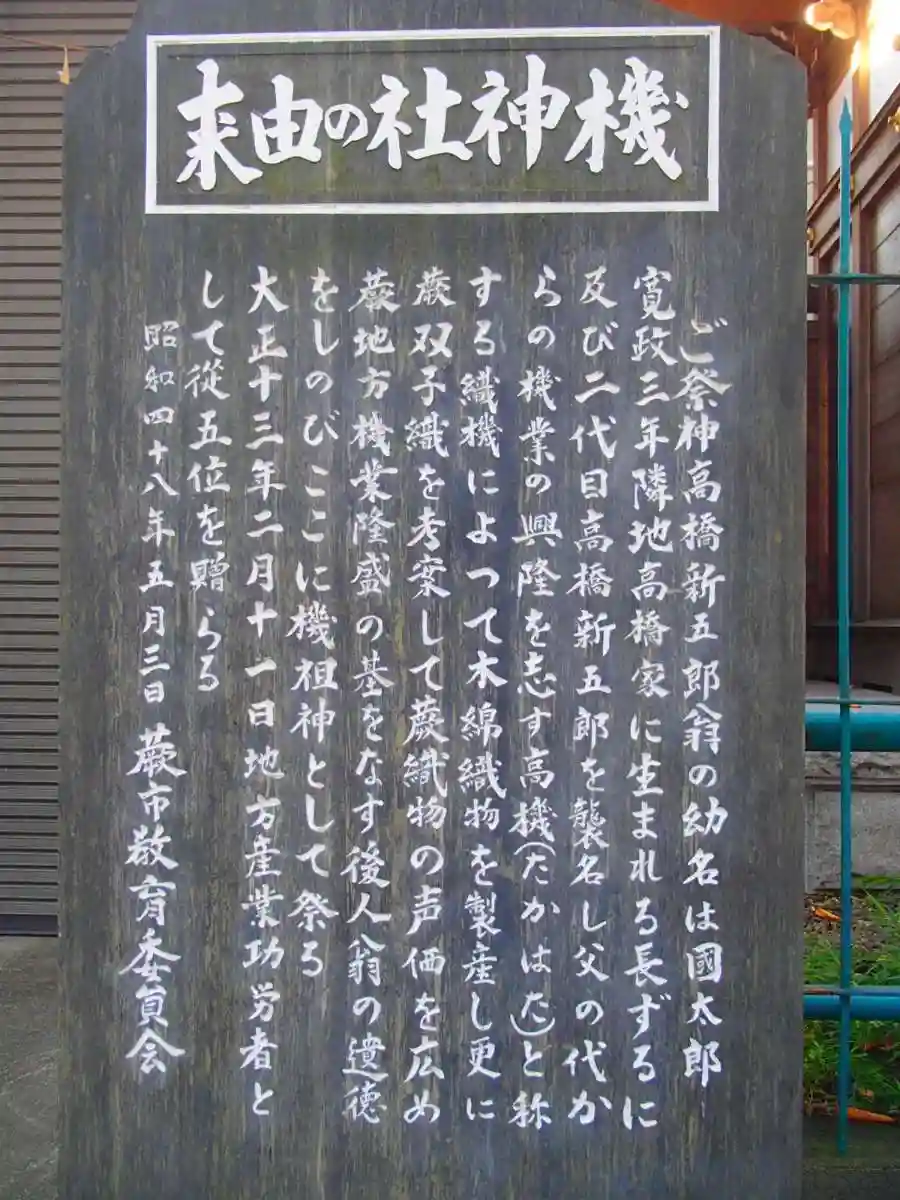 機神社の由来
ご祭神高橋新五郎翁の幼名は國太郎
寛政三年隣地高橋家に生まれる長ずるに
及び二代目高橋新五郎を襲名し父の代か
らの機業の興隆を志す高機(たかはた)と称
する織機によつて木綿織物を製産し更に
蕨双子織を考案して蕨織物の声価を広め
蕨地方機業隆盛の基をなす後人翁の遺徳
をしのびここに機祖神として祭る
大正十三年二月十一日地方産業功労者と
して從五位を贈らる
昭和四十八年五月三日 蕨市敎育委員会